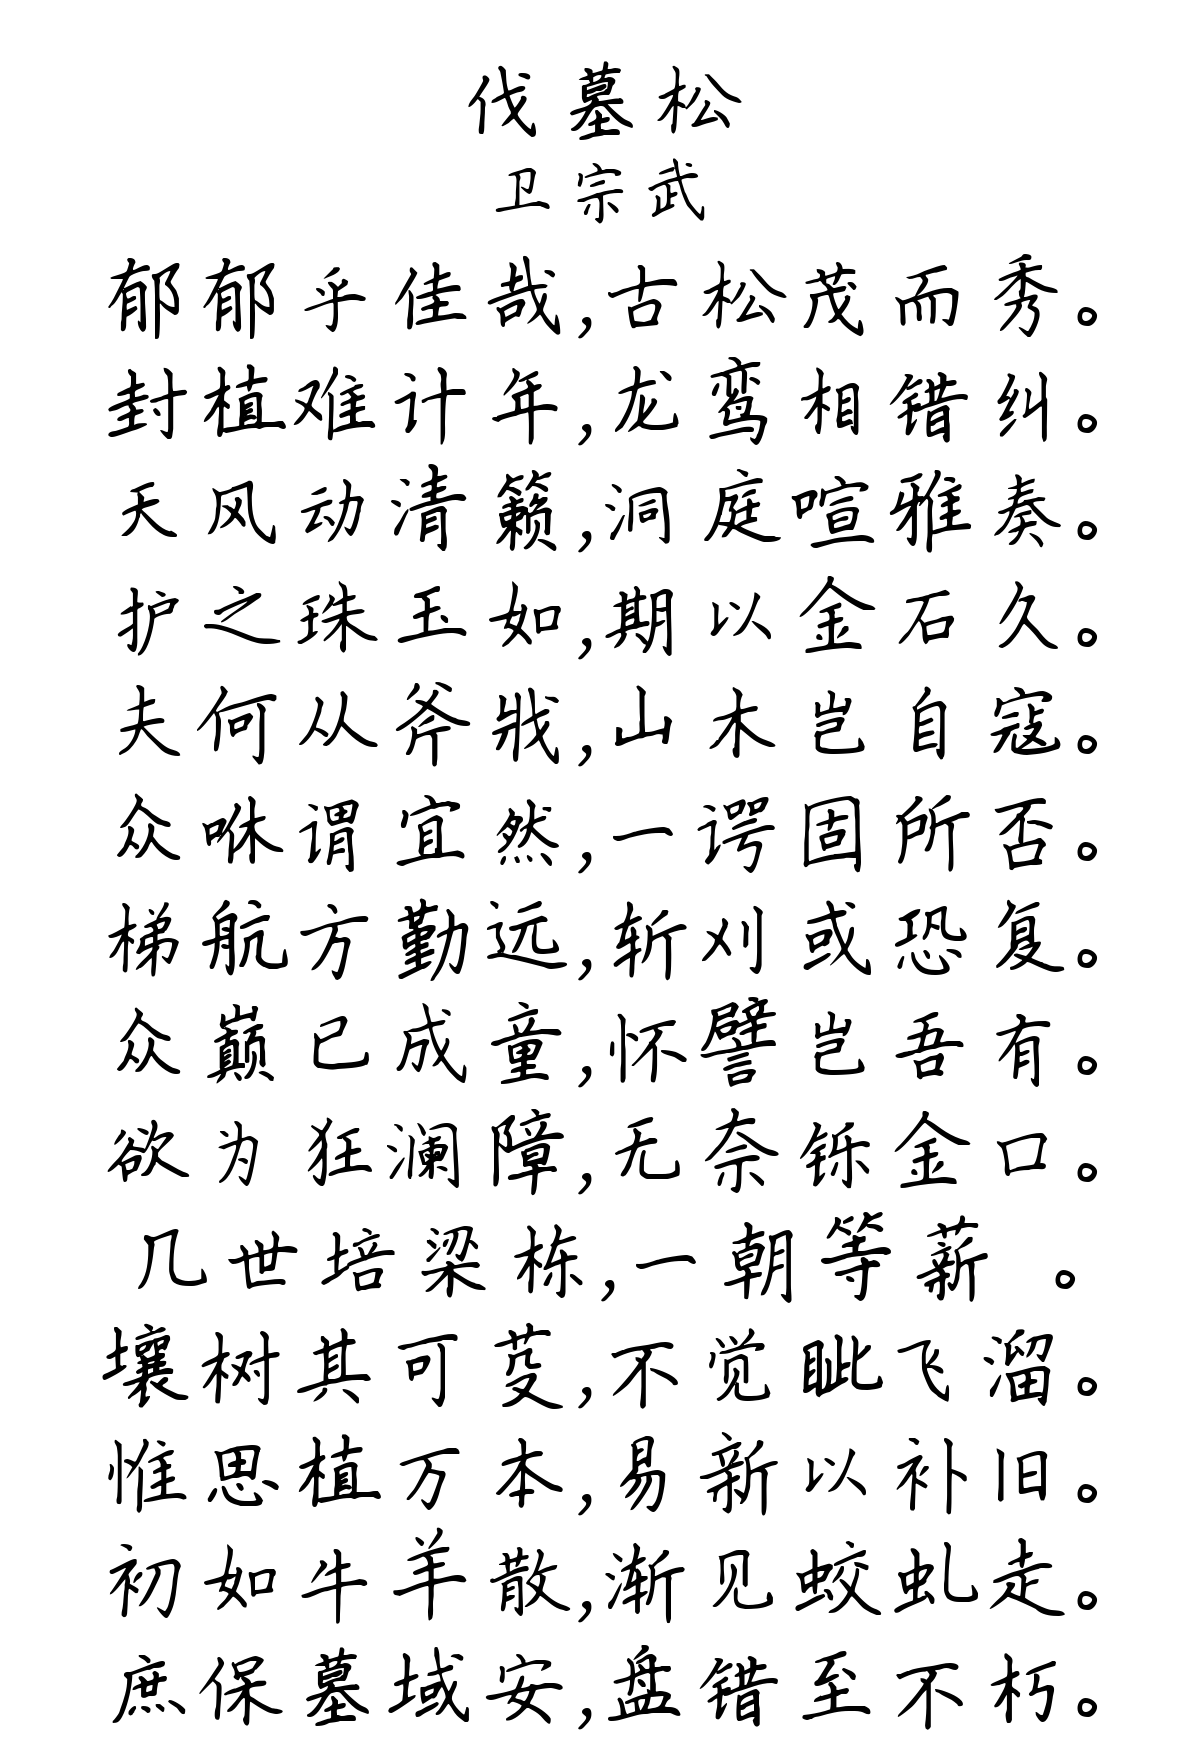 伐墓松
卫宗武
郁郁乎佳哉,古松茂而秀。
封植难计年,龙鸾相错纠。
天风动清籁,洞庭喧雅奏。
护之珠玉如,期以金石久。
夫何从斧戕,山木岂自寇。
众咻谓宜然,一谔固所否。
梯航方勤远,斩刈或恐复。
众巅已成童,怀譬岂吾有。
欲为狂澜障,无奈铄金口。
几世培梁栋,一朝等薪 。
壤树其可芟,不觉眦飞溜。
惟思植万本,易新以补旧。
初如牛羊散,渐见蛟虬走。
庶保墓域安,盘错至不朽。